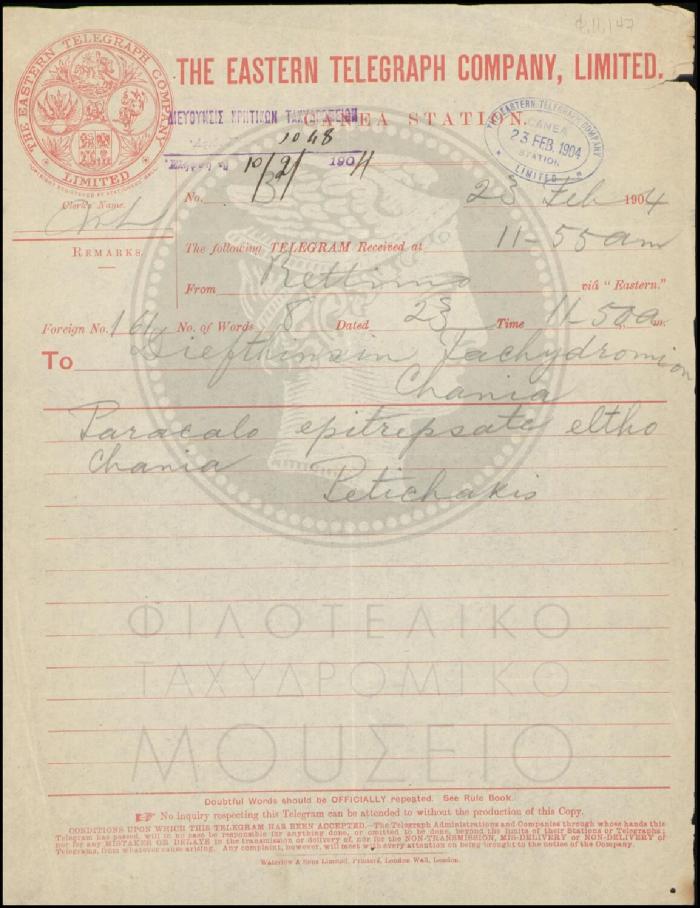 THE EASTERN TELEGRAPH COMPANY
LIMITED
THE EASTERN TELEGRAPH COMPANY, LIMITED.
CANEA STATION.
ΔΙΕΥΘΥΝΣΙΣ ΚΡΗΤΙΚΩΝ ΤΑΧΥΔΡΟΜΕΙΩΝ
1048
10/2/1904
THE EASTERN TELEGRAPH COMPANY
CANEA
23 FEB. 1904
STATION
LIMITED
Clerk's Name.
No.
23 Feb 1904
REMARKS.
The following TELEGRAM Received at 11-55 am
From Rettimo viâ "Eastern."
Foreign No. No. of Words 8 Dated 23 Time 11-50 a m.
To Diefthinsin Tachydromion
Chania
Paracalo epitrepsate eltho
Chania
Petichakis
ΦΙΛΟΤΕΛΙΚΟ
ΤΑΧΥΔΡΟΜΙΚΟ
ΜΟΥΣΕΙΟ
Doubtful Words should be OFFICIALLY repeated. See Rule Book.
No inquiry respecting this Telegram can be attended to without the production of this Copy.
CONDITIONS UPON WHICH THIS TELEGRAM HAS BEEN ACCEPTED.—The Telegraph Administrations and Companies through whose hands this
Telegram has passed, will in no case be responsible for anything done, or omitted to be done, beyond the limits of their Stations or Telegraphs;
nor for any MISTAKES OR DELAYS in the transmission or delivery of, nor for the NON-TRANSMISSION, MIS-DELIVERY or NON-DELIVERY of
Telegrams, from whatever cause arising. Any complaint, however, will meet with every attention on being brought to the notice of the Company.
Waterlow & Sons Limited, Printers, London Wall, London.